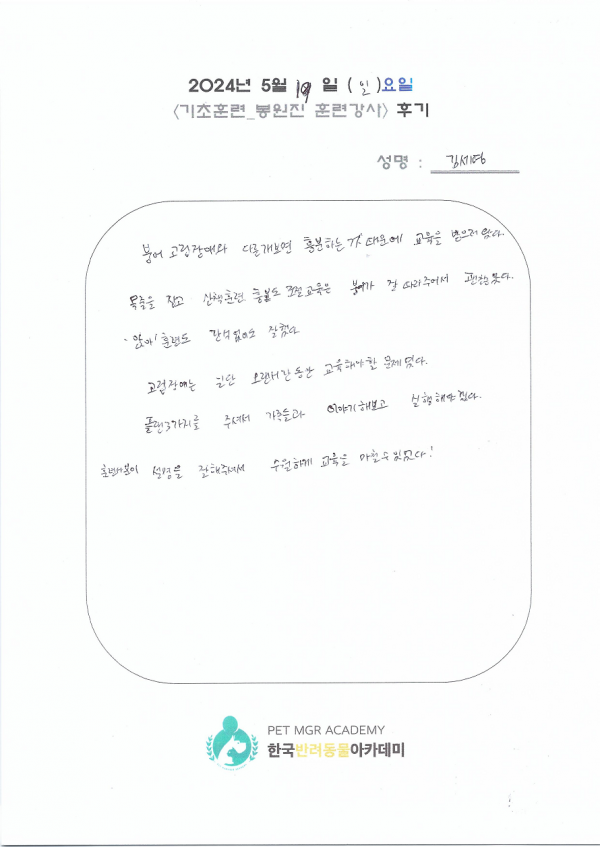 2024년 5월 19 일 (일)요일
<기초훈련_봉원진 훈련강사> 후기
성명 : 김세영
봉이 고립장애와 다른개보면 흥분하는 것 때문에 교육을 받으러 왔다.
목줄을 잡고 산책훈련 흥분도 조절교육은 봉이가 잘 따라주어서 괜찮았다.
'앉아' 훈련도 간식없이도 잘했다
고립장애는 일단 오랜시간동안 교육해야할 문제였다.
플랜3가지를 주셔서 가족들과 이야기해보고 실행해야겠다.
훈련사분이 설명을 잘해주셔서 수월하게 교육을 마칠수있었다!
PET MGR ACADEMY
한국반려동물아카데미